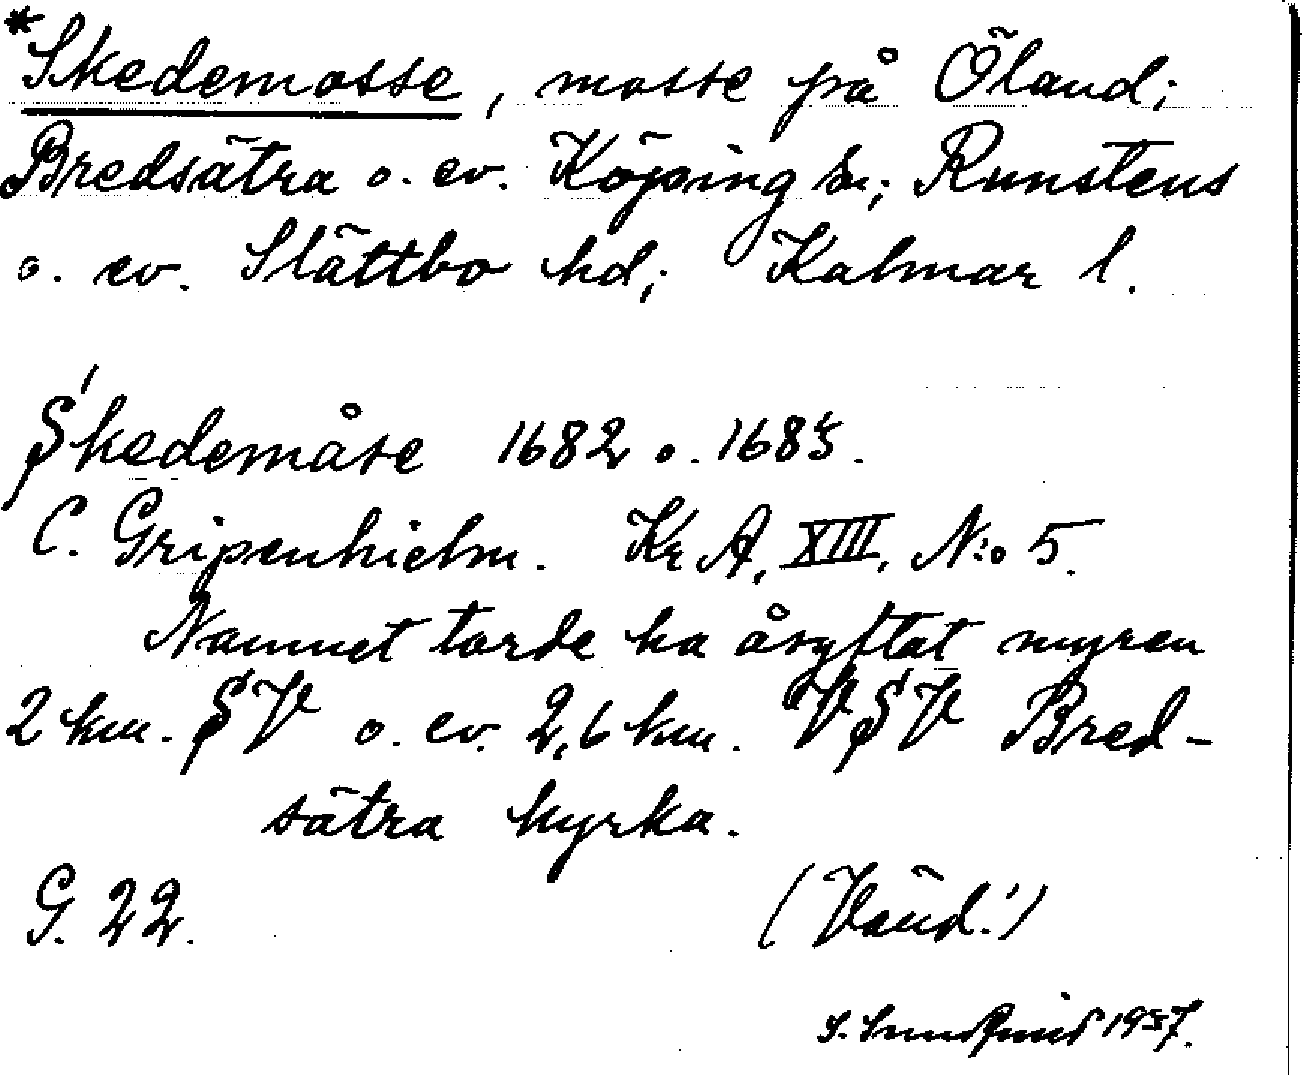 *Skedemosse, mosse på Öland;
Bredsätra o. ev. Köping sn; Runstens
o. ev. Slättbo hd; Kalmar l.
Skedemåse 1682 o. 1683.
C. Gripenhielm. Kr A, XIII, N:o 5.
Namnet torde ha åsyftat myren
2 km. SV o. ev. 2,6 km. VSV Bred-
sätra kyrka.
G. 22.
(Vänd!)
S. 1937.